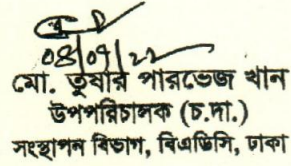 ০৪/০৭/২২
মো. তুষার পারভেজ খান
উপপরিচালক (চ.দা.)
সংস্থাপন বিভাগ, বিএডিসি, ঢাকা